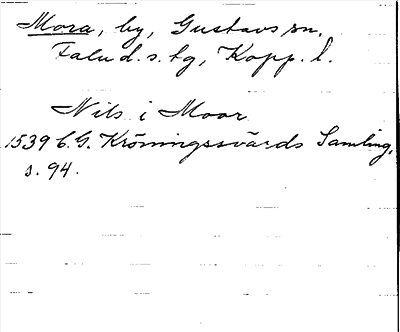 Mora, by, Gustavs sn,
Falu d. s. tg, Kopp. l.
Nils i Moor
1539 C. G. Kröningssvärds Samling,
s. 94.